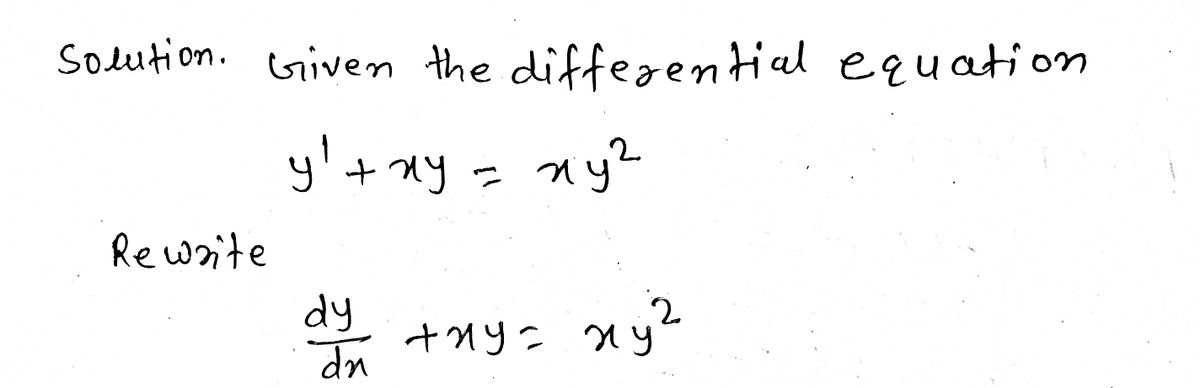 Solution. Given the differential equation
y' + xy = xy²
Rewrite
dy/dx + xy = xy²